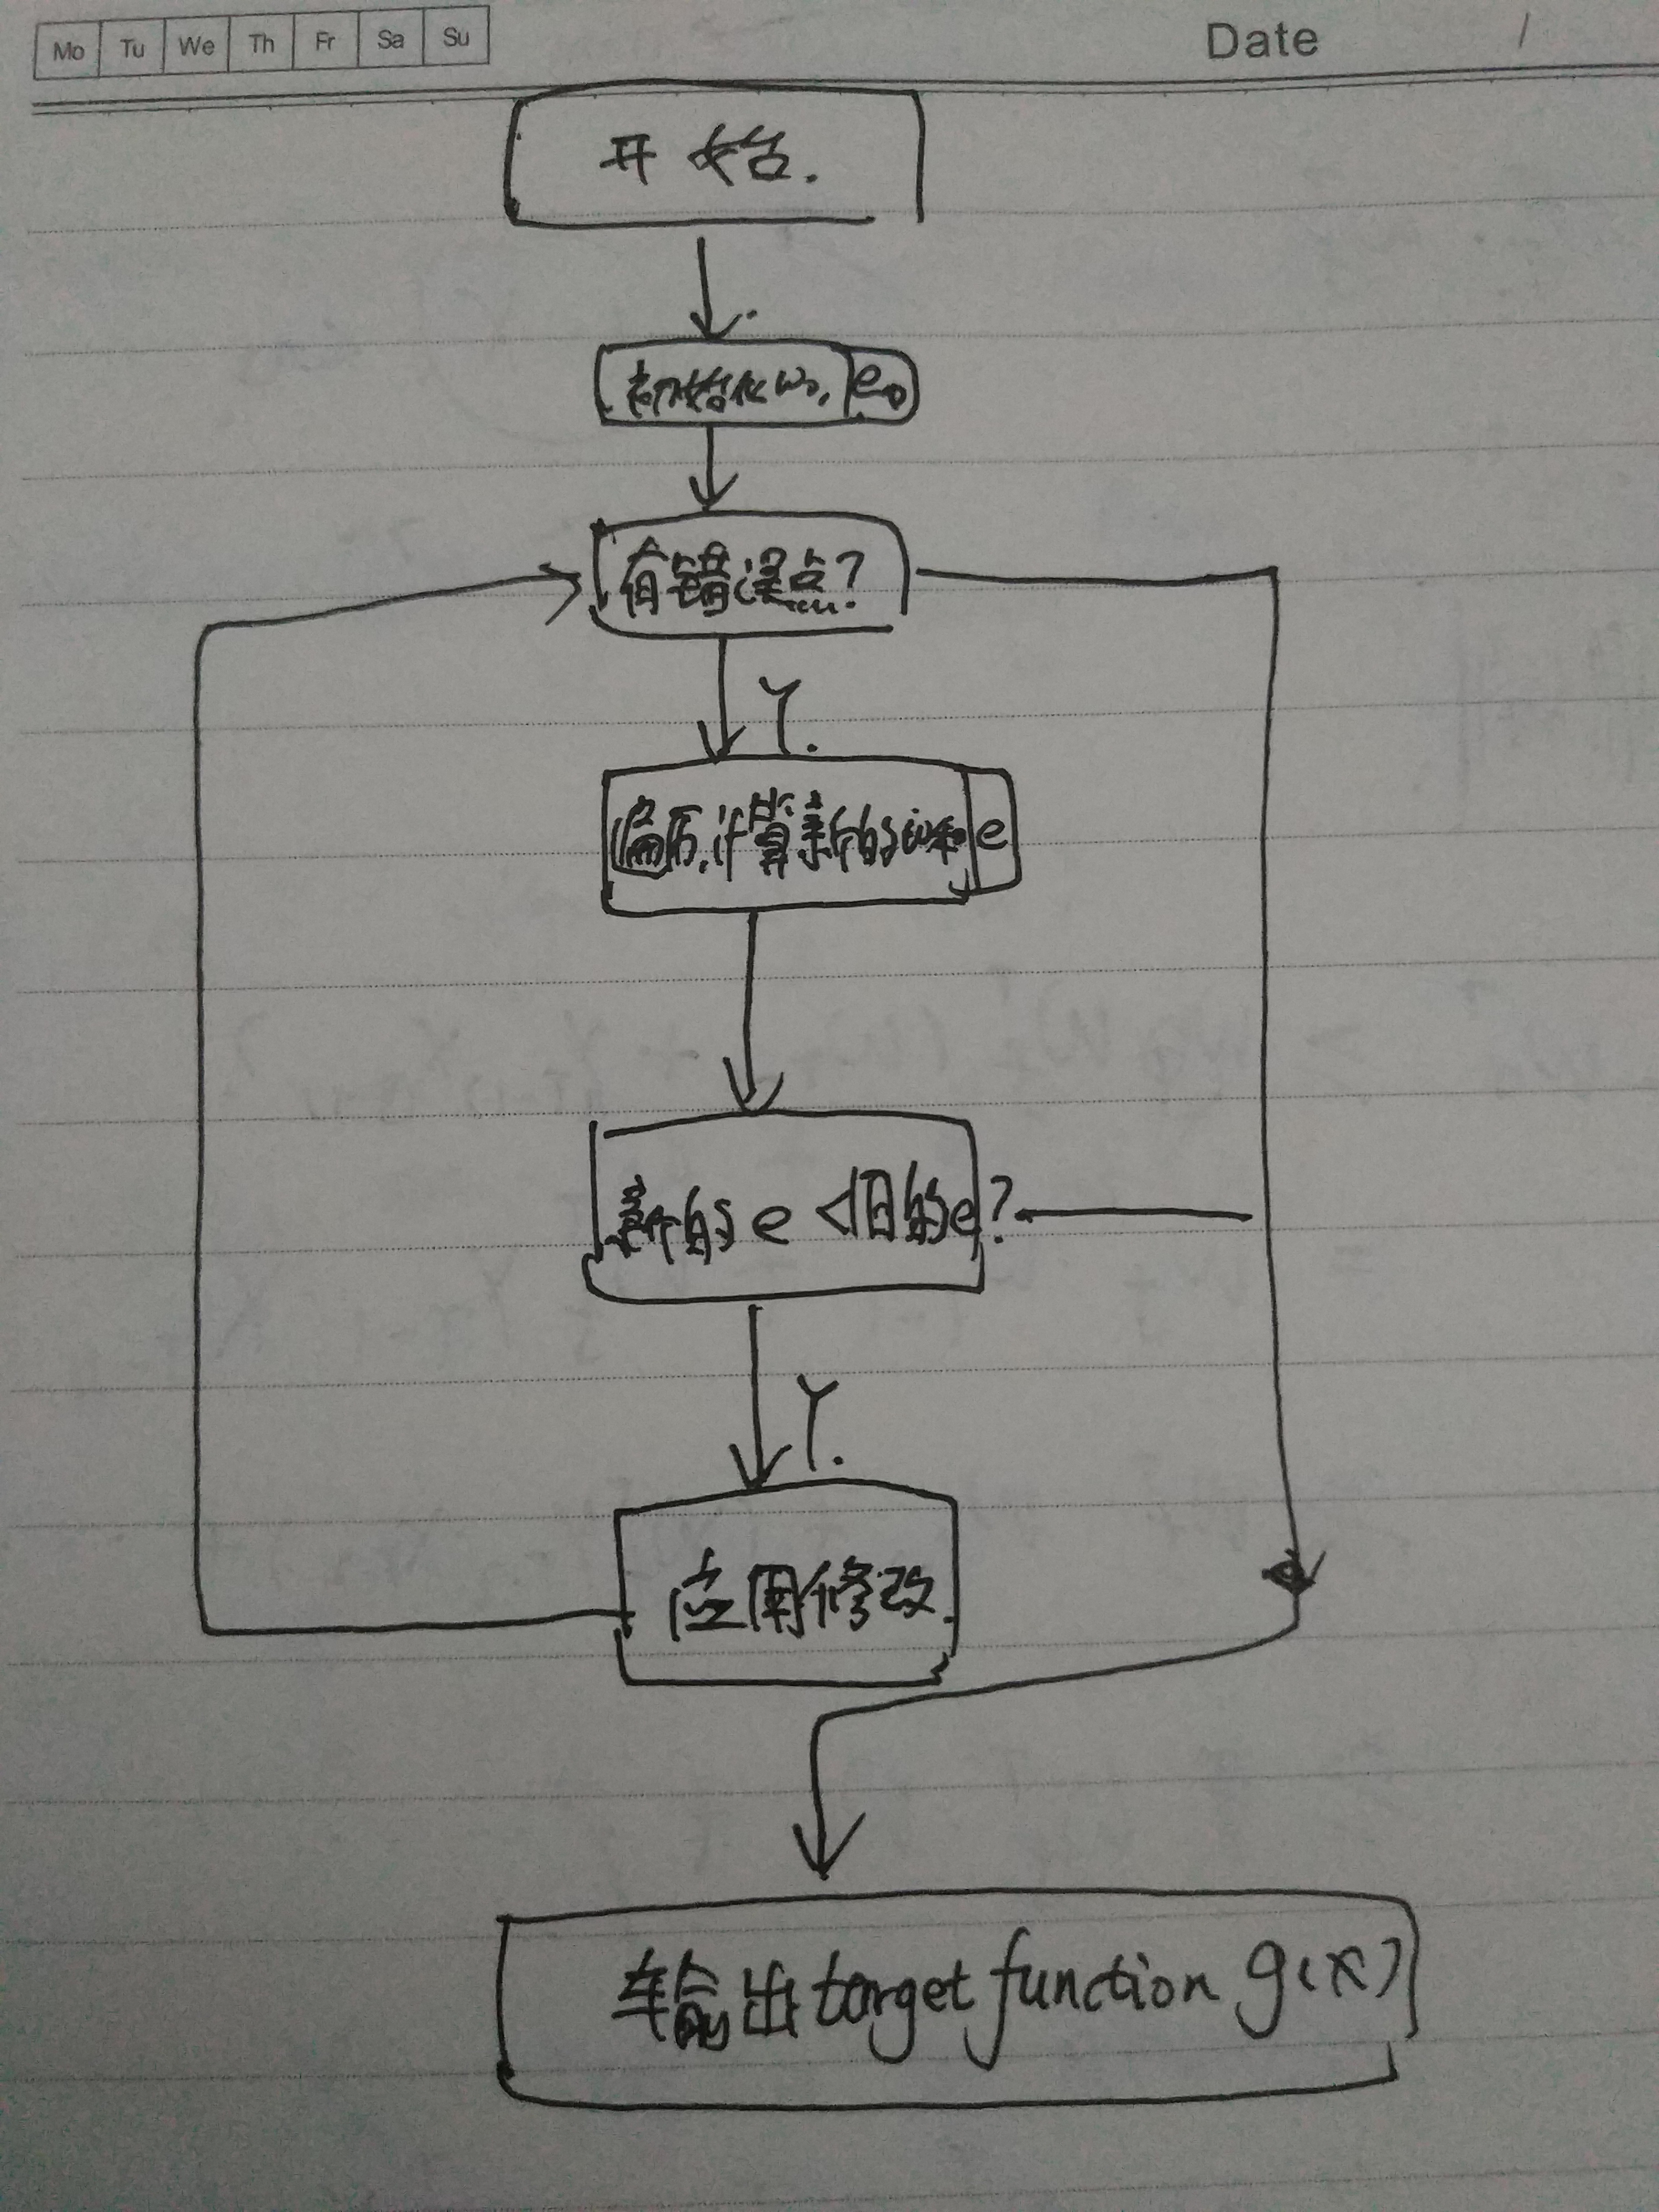 Mo Tu We Th Fr Sa Su
Date /
开始.
初始化w₀, e₀
有错误点?
Y.
遍历,计算新的w和e
新的e<旧的e?
Y.
应用修改.
输出target function g(x)